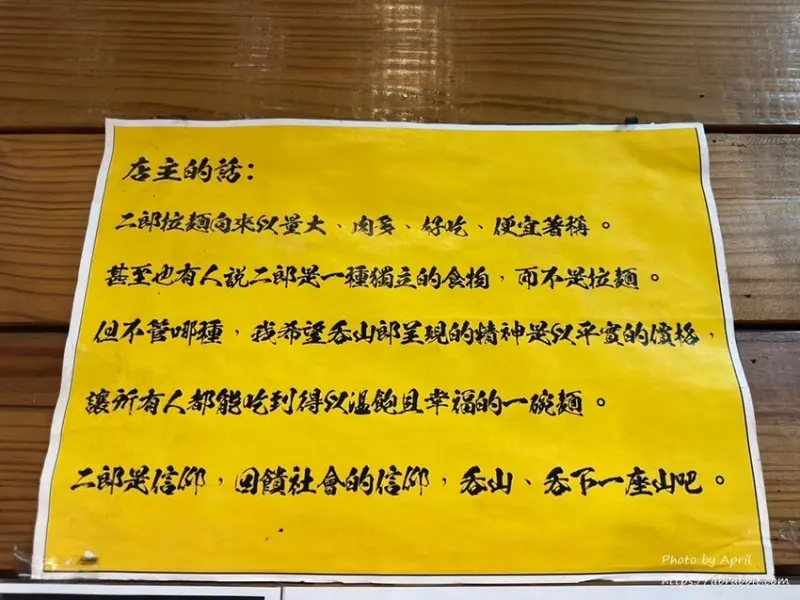 店主的話：
二郎拉麵向來以量大、肉多、好吃、便宜著稱。
甚至也有人說二郎是一種獨立的食物，而不是拉麵。
但不管哪種，我希望吞山郎呈現的精神是以平實的價格，
讓所有人都能吃到得以溫飽且幸福的一碗麵。
二郎是信仰，回饋社會的信仰，吞山、吞下一座山吧。
Photo by April
https://abrabbit.com